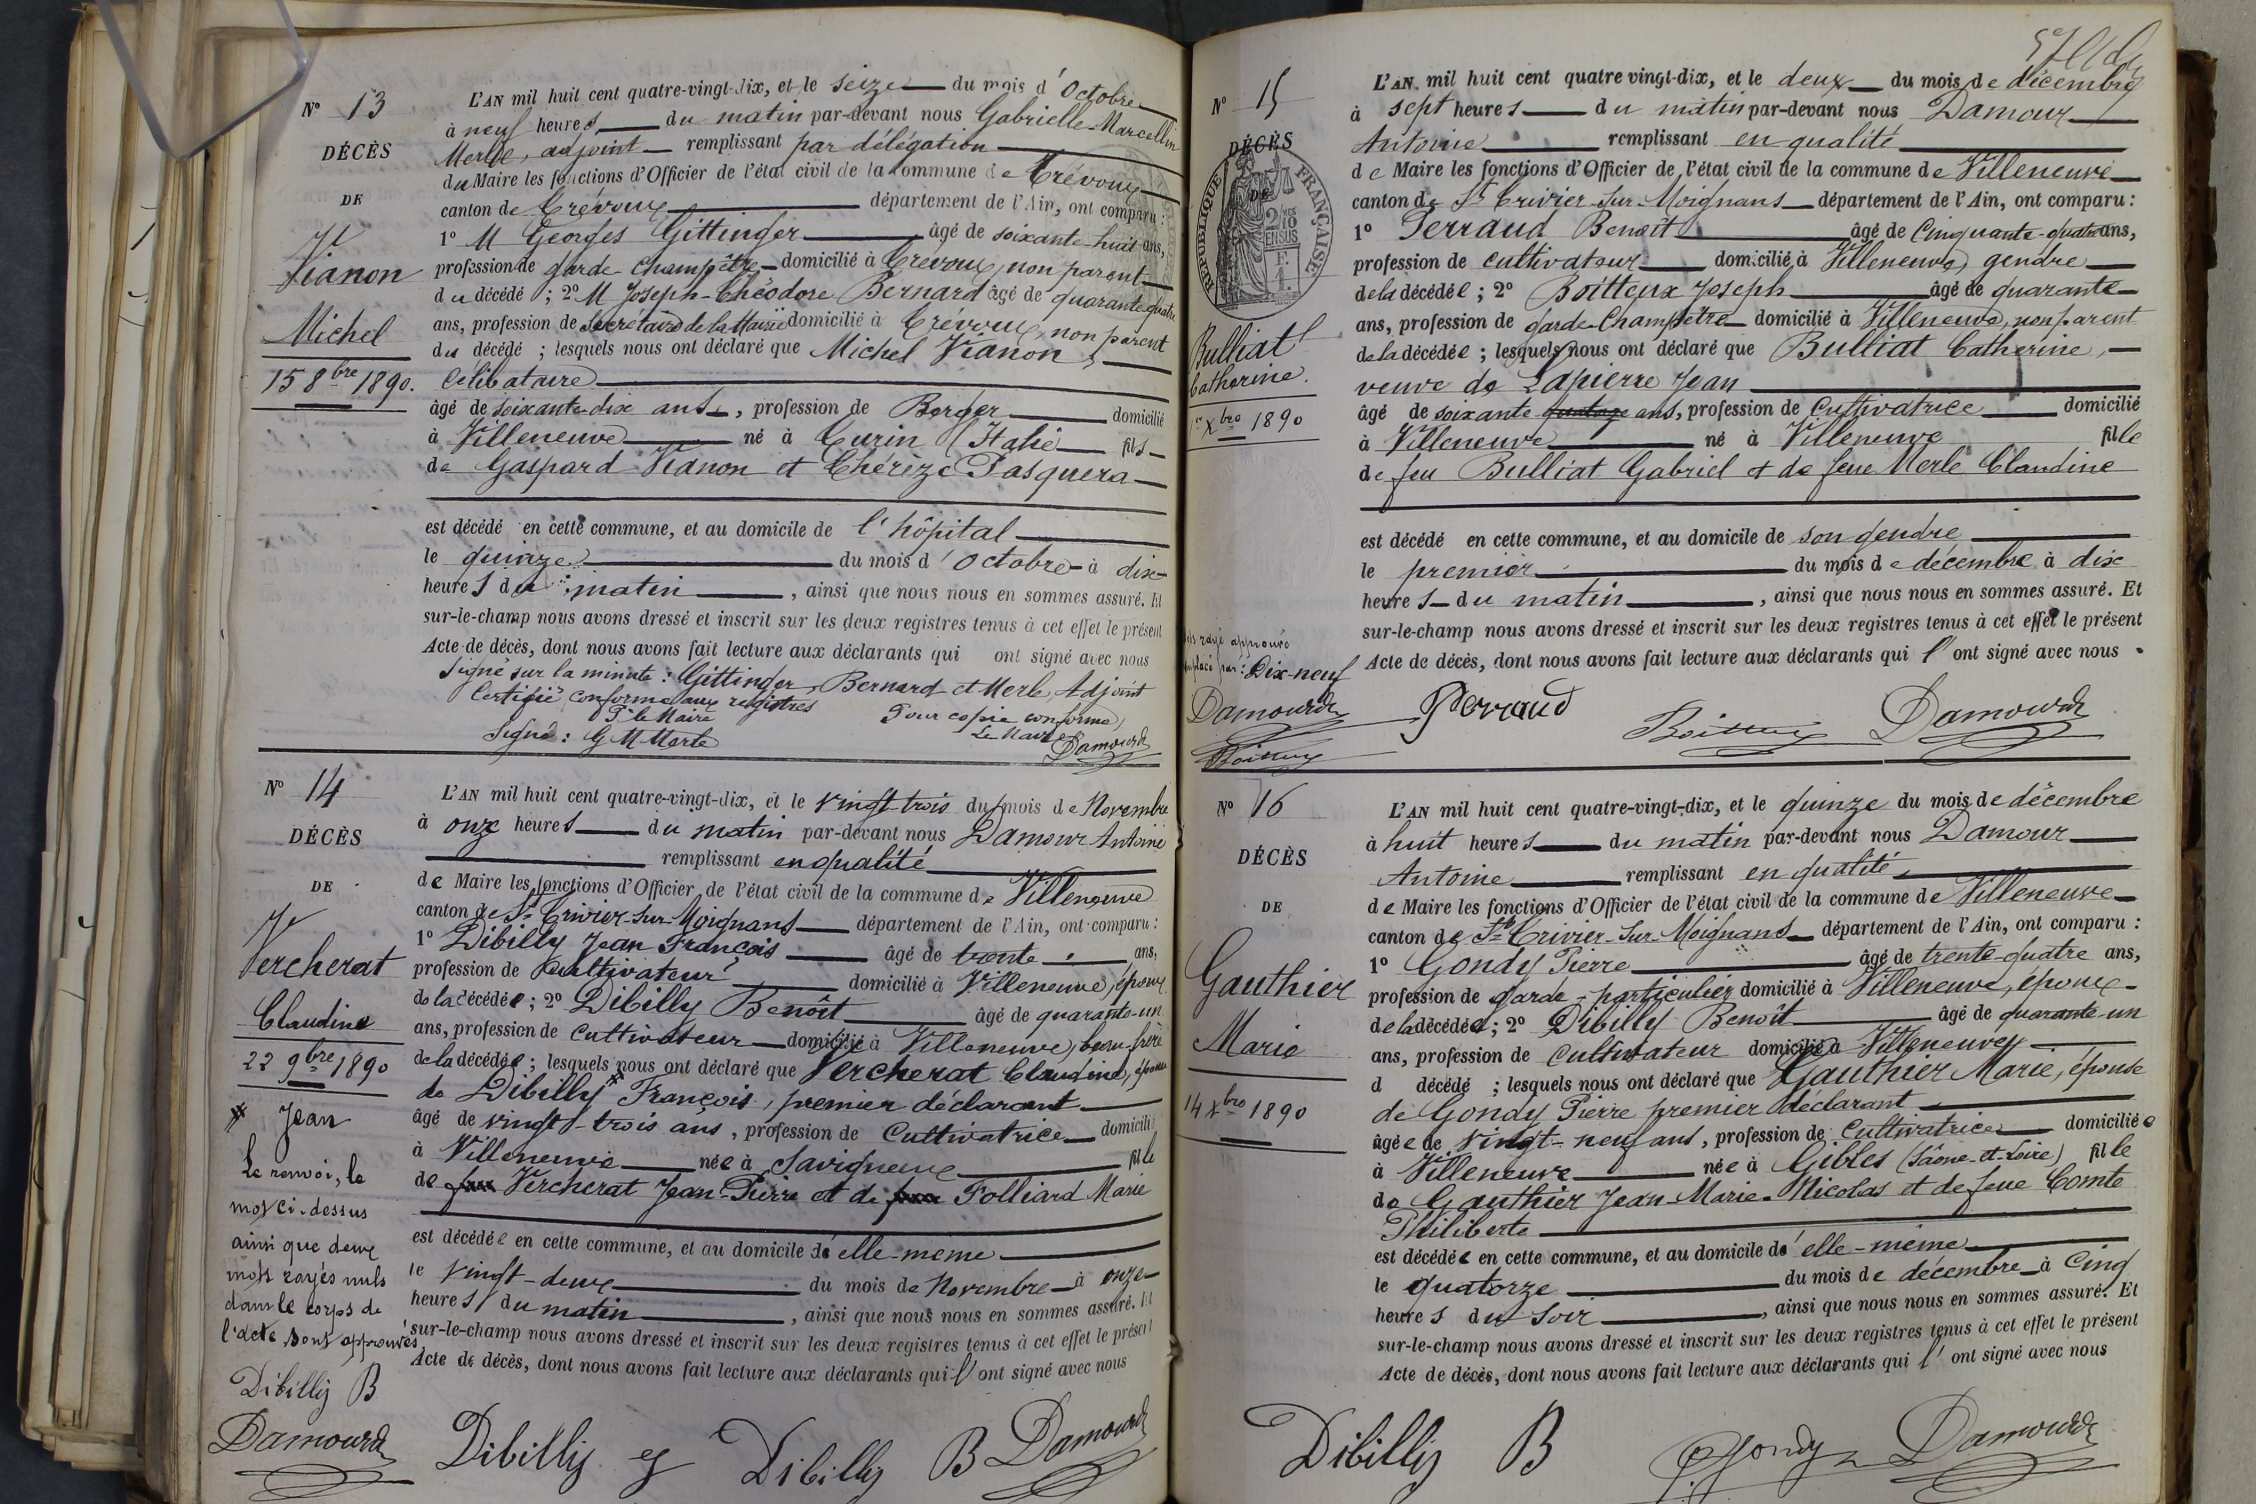 N° 13
DÉCÈS
DE
Vianon
Michel
15 8bre 1890.
L'AN mil huit cent quatre-vingt-dix, et le seize du mois d'Octobre
à neuf heures du matin par-devant nous Gabrielle-Marcellin
Merle, adjoint remplissant par délégation
du Maire les fonctions d'Officier de l'état civil de la commune de Trévoux
canton de Trévoux département de l'Ain, ont comparu :
1° M Georges Gittinger âgé de soixante-huit ans,
profession de garde-champêtre domicilié à Trévoux, non parent
du décédé ; 2° M Joseph-Théodore Bernard âgé de quarante-quatre
ans, profession de Secrétaire de la Mairie domicilié à Trévoux, non parent
du décédé ; lesquels nous ont déclaré que Michel Vianon,
Célibataire
âgé de soixante-dix ans, profession de Berger domicilié
à Villeneuve né à Turin (Italie fils
de Gaspard Vianon et Thérèze Pasquera
est décédé en cette commune, et au domicile de l'hôpital
le quinze du mois d'Octobre à dix
heures du matin, ainsi que nous nous en sommes assuré. Et
sur-le-champ nous avons dressé et inscrit sur les deux registres tenus à cet effet le présent
Acte de décès, dont nous avons fait lecture aux déclarants qui ont signé avec nous
Signé sur la minute : Gittinger, Bernard et Merle, Adjoint
Certifié conforme aux registres
P. le Maire
Signé : G M Merle
Pour copie conforme,
Le Maire
Damourd
N° 14
DÉCÈS
DE
Vercherat
Claudine
22 9bre 1890
# Jean
Le renvoi, le
mot ci-dessus
ainsi que deux
mots rayés nuls
dans le corps de
l'acte sont approuvés
Dibilly B
Damourd
L'AN mil huit cent quatre-vingt-dix, et le vingt-trois du mois de Novembre
à onze heures du matin par-devant nous Damour Antoine
remplissant en qualité
de Maire les fonctions d'Officier de l'état civil de la commune de Villeneuve
canton de St Trivier-sur-Moignans département de l'Ain, ont comparu :
1° Dibilly Jean François âgé de trente ans,
profession de Cultivateur domicilié à Villeneuve, époux
de la décédée ; 2° Dibilly Benoît âgé de quarante-un
ans, profession de Cultivateur domicilié à Villeneuve, beau-frère
de la décédée ; lesquels nous ont déclaré que Vercherat Claudine, épouse
de Dibilly # François, premier déclarant
âgé de vingt-trois ans, profession de Cultivatrice domicilié
à Villeneuve née à Savigneux fille
de feu Vercherat Jean-Pierre et de feue Folliard Marie
est décédée en cette commune, et au domicile d'elle-même
le vingt-deux du mois de Novembre à onze
heures du matin, ainsi que nous nous en sommes assuré. Et
sur-le-champ nous avons dressé et inscrit sur les deux registres tenus à cet effet le présent
Acte de décès, dont nous avons fait lecture aux déclarants qui l'ont signé avec nous
Dibilly Dibilly B Damourd
N° 15
DÉCÈS
DE
RÉPUBLIQUE FRANÇAISE
Bulliat
Catherine.
1er Xbre 1890
rayé approuvé
remplacé par : Dix-neuf
Damourd
L'AN mil huit cent quatre vingt-dix, et le deux du mois de décembre
à sept heures du matin par-devant nous Damour
Antoine remplissant en qualité
de Maire les fonctions d'Officier de l'état civil de la commune de Villeneuve
canton de St Trivier-sur-Moignans département de l'Ain, ont comparu :
1° Perraud Benoît âgé de Cinquante-quatre ans,
profession de cultivateur domicilié à Villeneuve, gendre
de la décédée ; 2° Boitteux Joseph âgé de quarante
ans, profession de garde-Champêtre domicilié à Villeneuve, non parent
de la décédée ; lesquels nous ont déclaré que Bulliat Catherine,
veuve de Lapierre Jean
âgé de soixante quatorze ans, profession de Cultivatrice domicilié
à Villeneuve né à Villeneuve fille
de feu Bulliat Gabriel et de feue Merle Claudine
est décédé en cette commune, et au domicile de son gendre
le premier du mois de décembre à dix
heures du matin, ainsi que nous nous en sommes assuré. Et
sur-le-champ nous avons dressé et inscrit sur les deux registres tenus à cet effet le présent
Acte de décès, dont nous avons fait lecture aux déclarants qui l'ont signé avec nous.
Perraud Damourd
N° 16
DÉCÈS
DE
Gauthier
Marie
14 Xbre 1890
L'AN mil huit cent quatre-vingt-dix, et le quinze du mois de décembre
à huit heures du matin par-devant nous Damour
Antoine remplissant en qualité
de Maire les fonctions d'Officier de l'état civil de la commune de Villeneuve
canton de St Trivier-sur-Moignans département de l'Ain, ont comparu :
1° Gondy Pierre âgé de trente-quatre ans,
profession de garde-particulier domicilié à Villeneuve, époux
de la décédée ; 2° Dibilly Benoît âgé de quarante-un
ans, profession de Cultivateur domicilié à Villeneuve
d décédé ; lesquels nous ont déclaré que Gauthier Marie, épouse
de Gonay Pierre premier déclarant
âgée de vingt-neuf ans, profession de Cultivatrice domiciliée
à Villeneuve née à Gibles (Saône-et-Loire) fille
de Gauthier Jean-Marie-Nicolas et de feue Comte
Philiberte
est décédée en cette commune, et au domicile d'elle-même
le quatorze du mois de décembre à Cinq
heures du soir, ainsi que nous nous en sommes assuré. Et
sur-le-champ nous avons dressé et inscrit sur les deux registres tenus à cet effet le présent
Acte de décès, dont nous avons fait lecture aux déclarants qui l'ont signé avec nous
Dibilly B Gondy Damourd